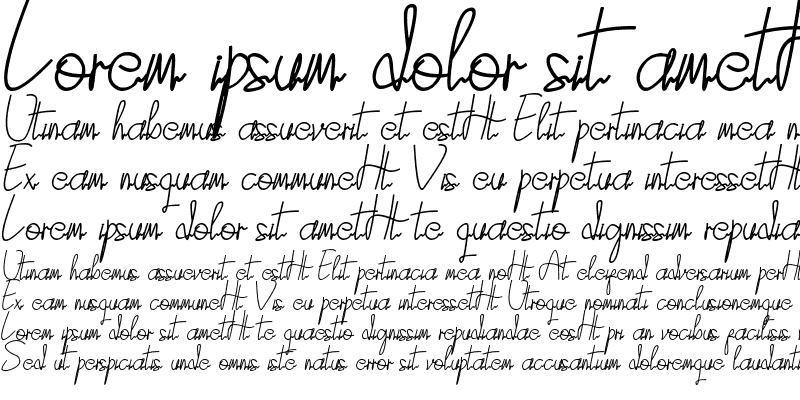 Lorem ipsum dolor sit ametHt
Utinam habemus assueverit et estHt Elit pertinacia mea n
Ex eam nusquam communeHt Vis eu perpetua interessetHt
Lorem ipsum dolor sit ametHt te quaestio dignissim repudia
Utinam habemus assueverit et estHt Elit pertinacia mea noHt At eleifend adversarium perHt
Ex eam nusquam communeHt Vis eu perpetua interessetHt Utroque nominati conclusionemque
Lorem ipsum dolor sit ametHt te quaestio dignissim repudiandae eosHt pri an vocibus facilisis
Sed ut perspiciatis unde omnis iste natus error sit voluptatem accusantium doloremque laudanti